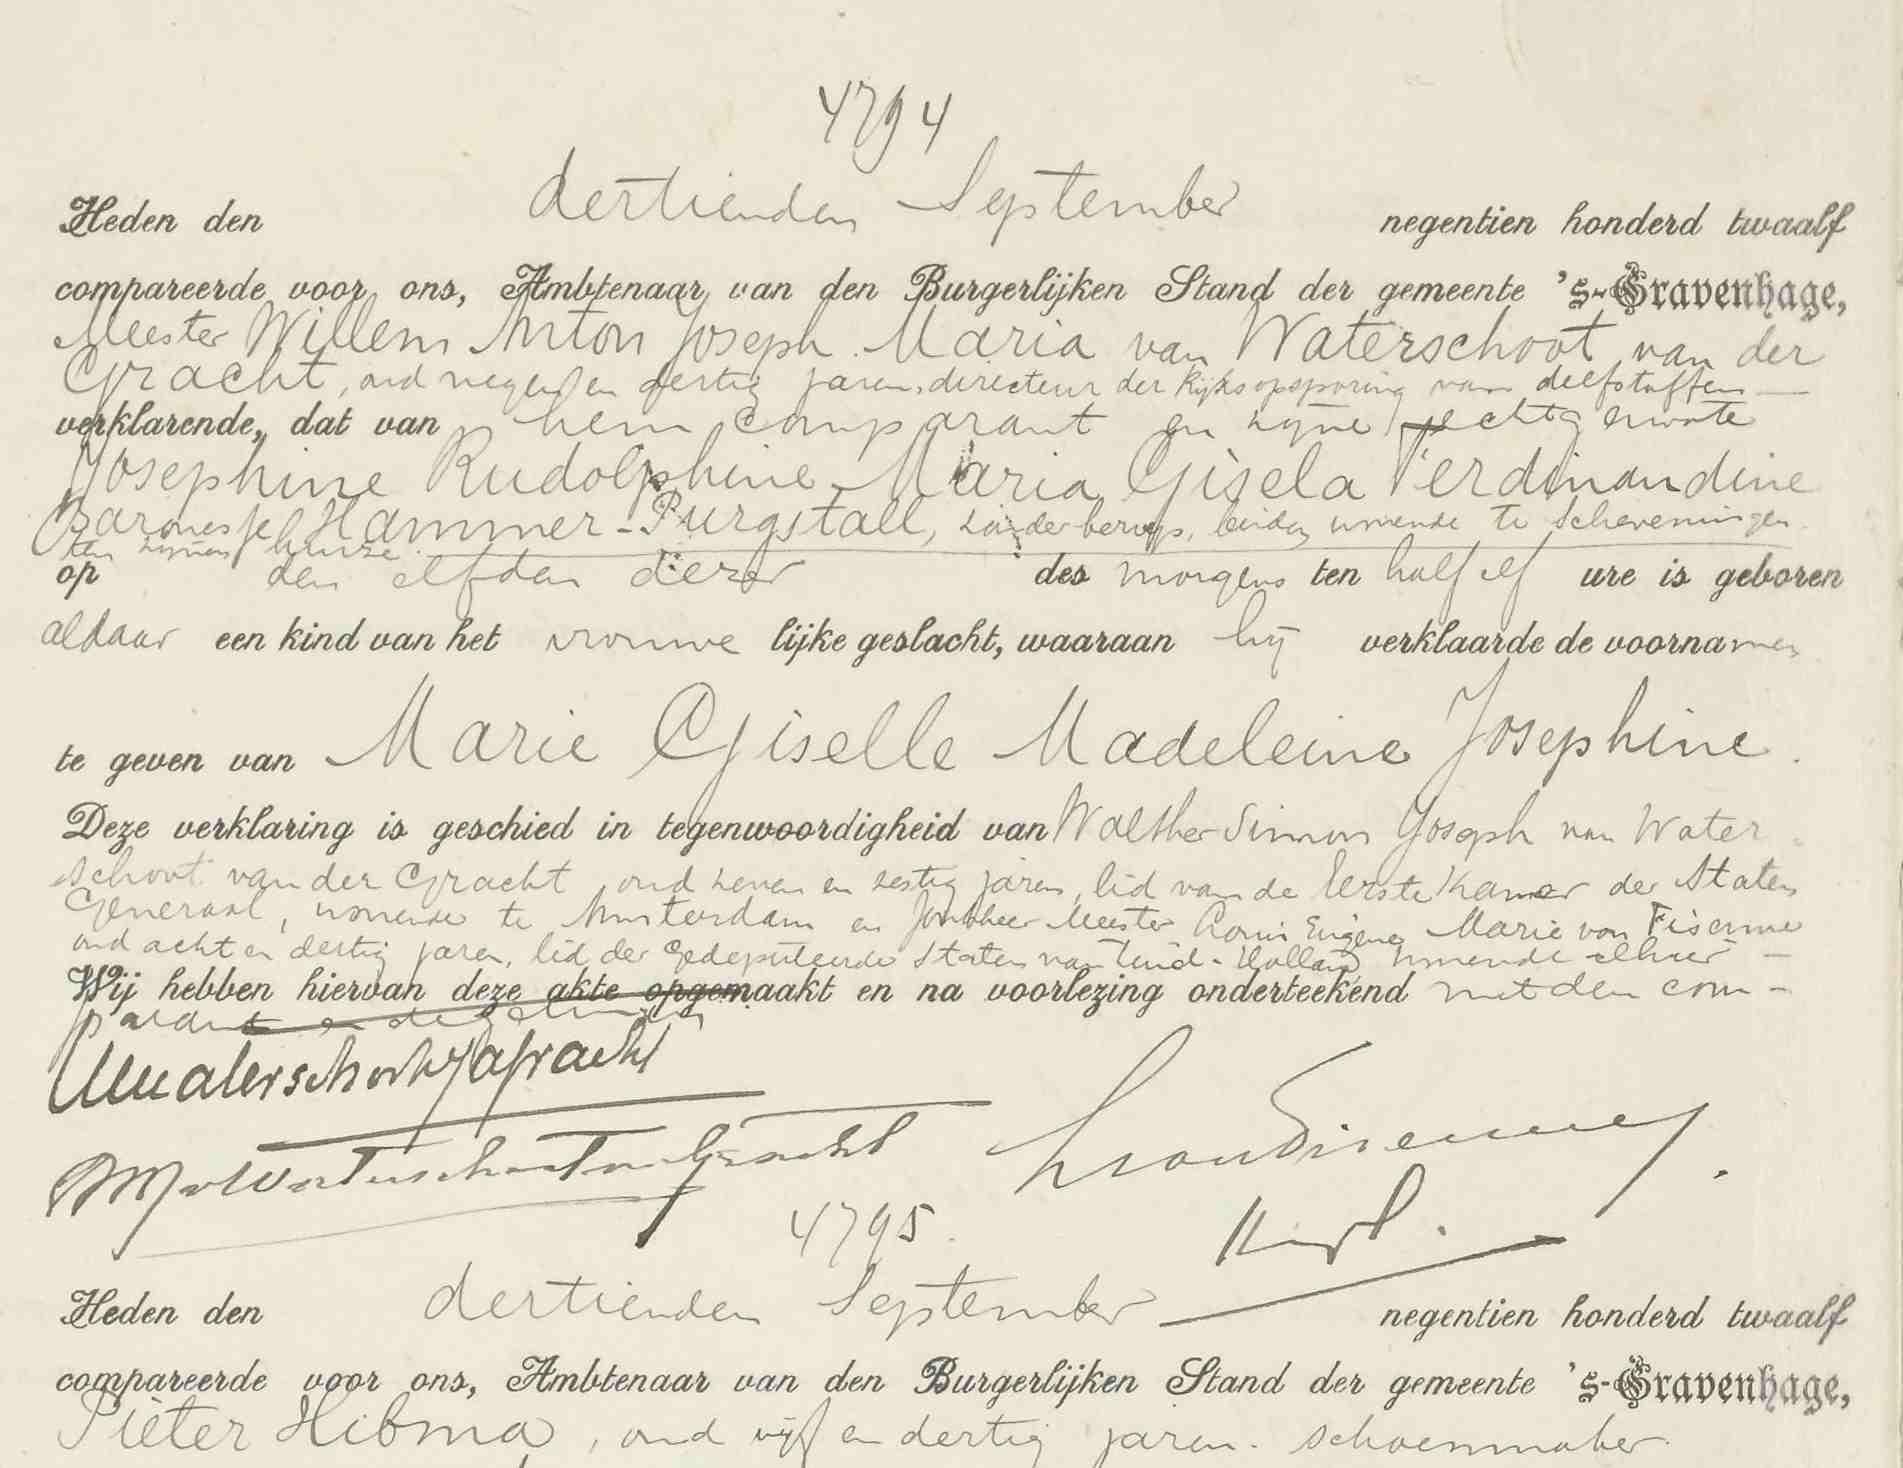 4794
Heden den dertienden September negentien honderd twaalf
compareerde voor ons, Ambtenaar van den Burgerlijken Stand der gemeente 's-Gravenhage,
Meester Willem Anton Joseph Maria van Waterschoot van der
Gracht, oud negen en dertig jaren, directeur der Rijksopsporing van delfstoffen
verklarende, dat van hem comparant en zijne echtgenoote
Josephine Rudolphine Maria Gisela Ferdinandine
Baronesse Hammer-Purgstall, zonder beroep, beiden wonende te Scheveningen
ten zijnen huize
op den elfden dezer des morgens ten half elf ure is geboren
aldaar een kind van het vrouwelijke geslacht, waaraan hij verklaarde de voornamen
te geven van Marie Giselle Madeleine Josephine.
Deze verklaring is geschied in tegenwoordigheid van Walther Simon Joseph van Water
schoot van der Gracht, oud zeven en zestig jaren, lid van de Eerste Kamer der Staten
Generaal, wonende te Amsterdam en Jonkheer Meester Louis Eugène Marie von Fisenne
oud acht en dertig jaren, lid der Gedeputeerde Staten van Zuid-Holland, wonende alhier
Wij hebben hiervan deze akte opgemaakt en na voorlezing onderteekend met den com-
parant en de getuigen
4795
Heden den dertienden September negentien honderd twaalf
compareerde voor ons, Ambtenaar van den Burgerlijken Stand der gemeente 's-Gravenhage,
Pieter Hibma, oud vijf en dertig jaren, schoenmaker